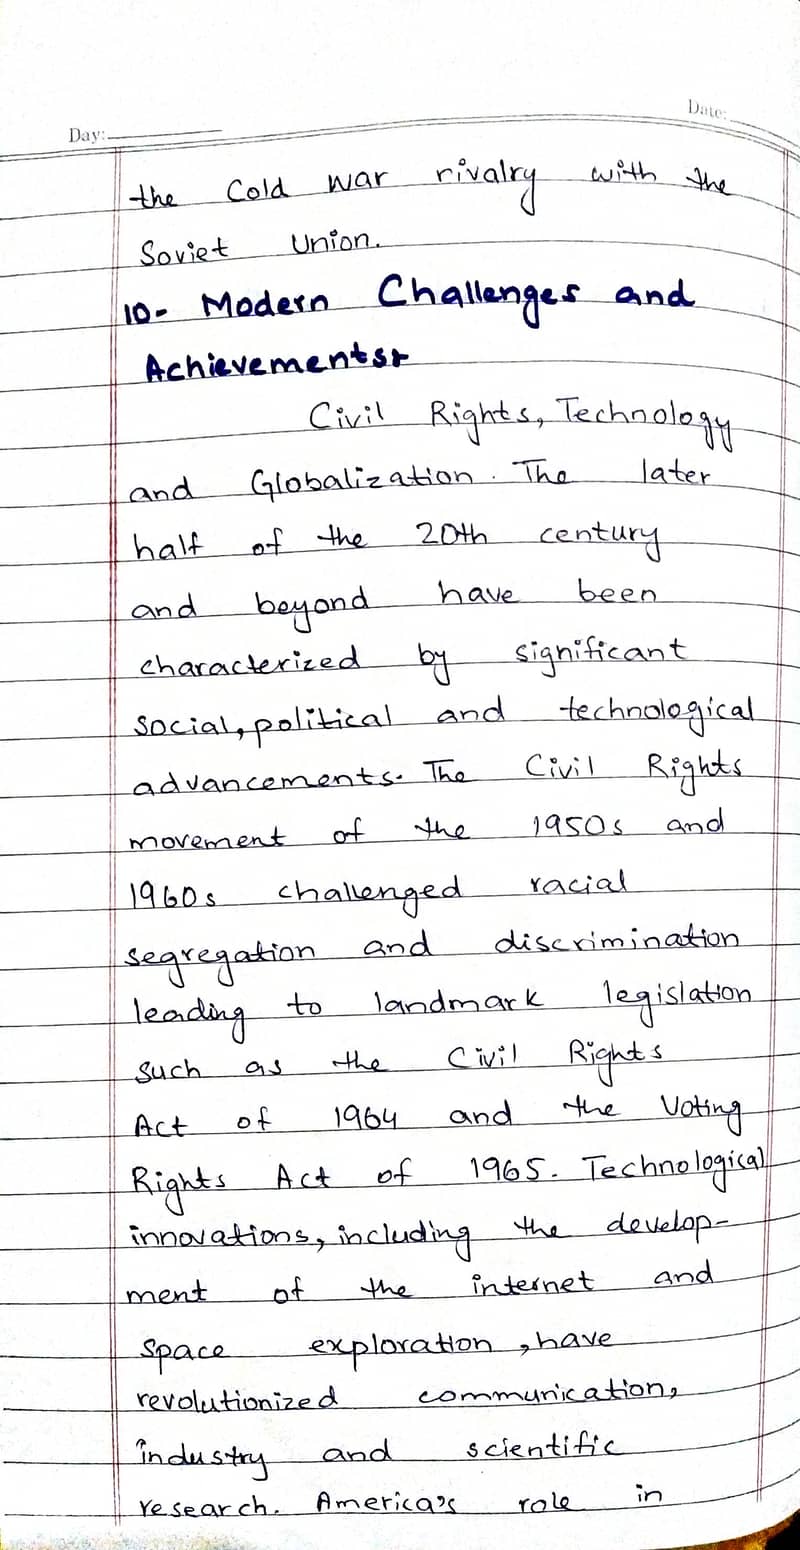 Day:
Date:
the Cold war rivalry with the
Soviet Union.
10- Modern Challenges and
Achievements:-
Civil Rights, Technology
and Globalization. The later
half of the 20th century
and beyond have been
characterized by significant
social, political and technological
advancements. The Civil Rights
movement of the 1950s and
1960s challenged racial
segregation and discrimination
leading to landmark legislation
such as the Civil Rights
Act of 1964 and the Voting
Rights Act of 1965. Technological
innovations, including the develop-
ment of the internet and
space exploration, have
revolutionized communication,
industry and scientific
research. America's role in